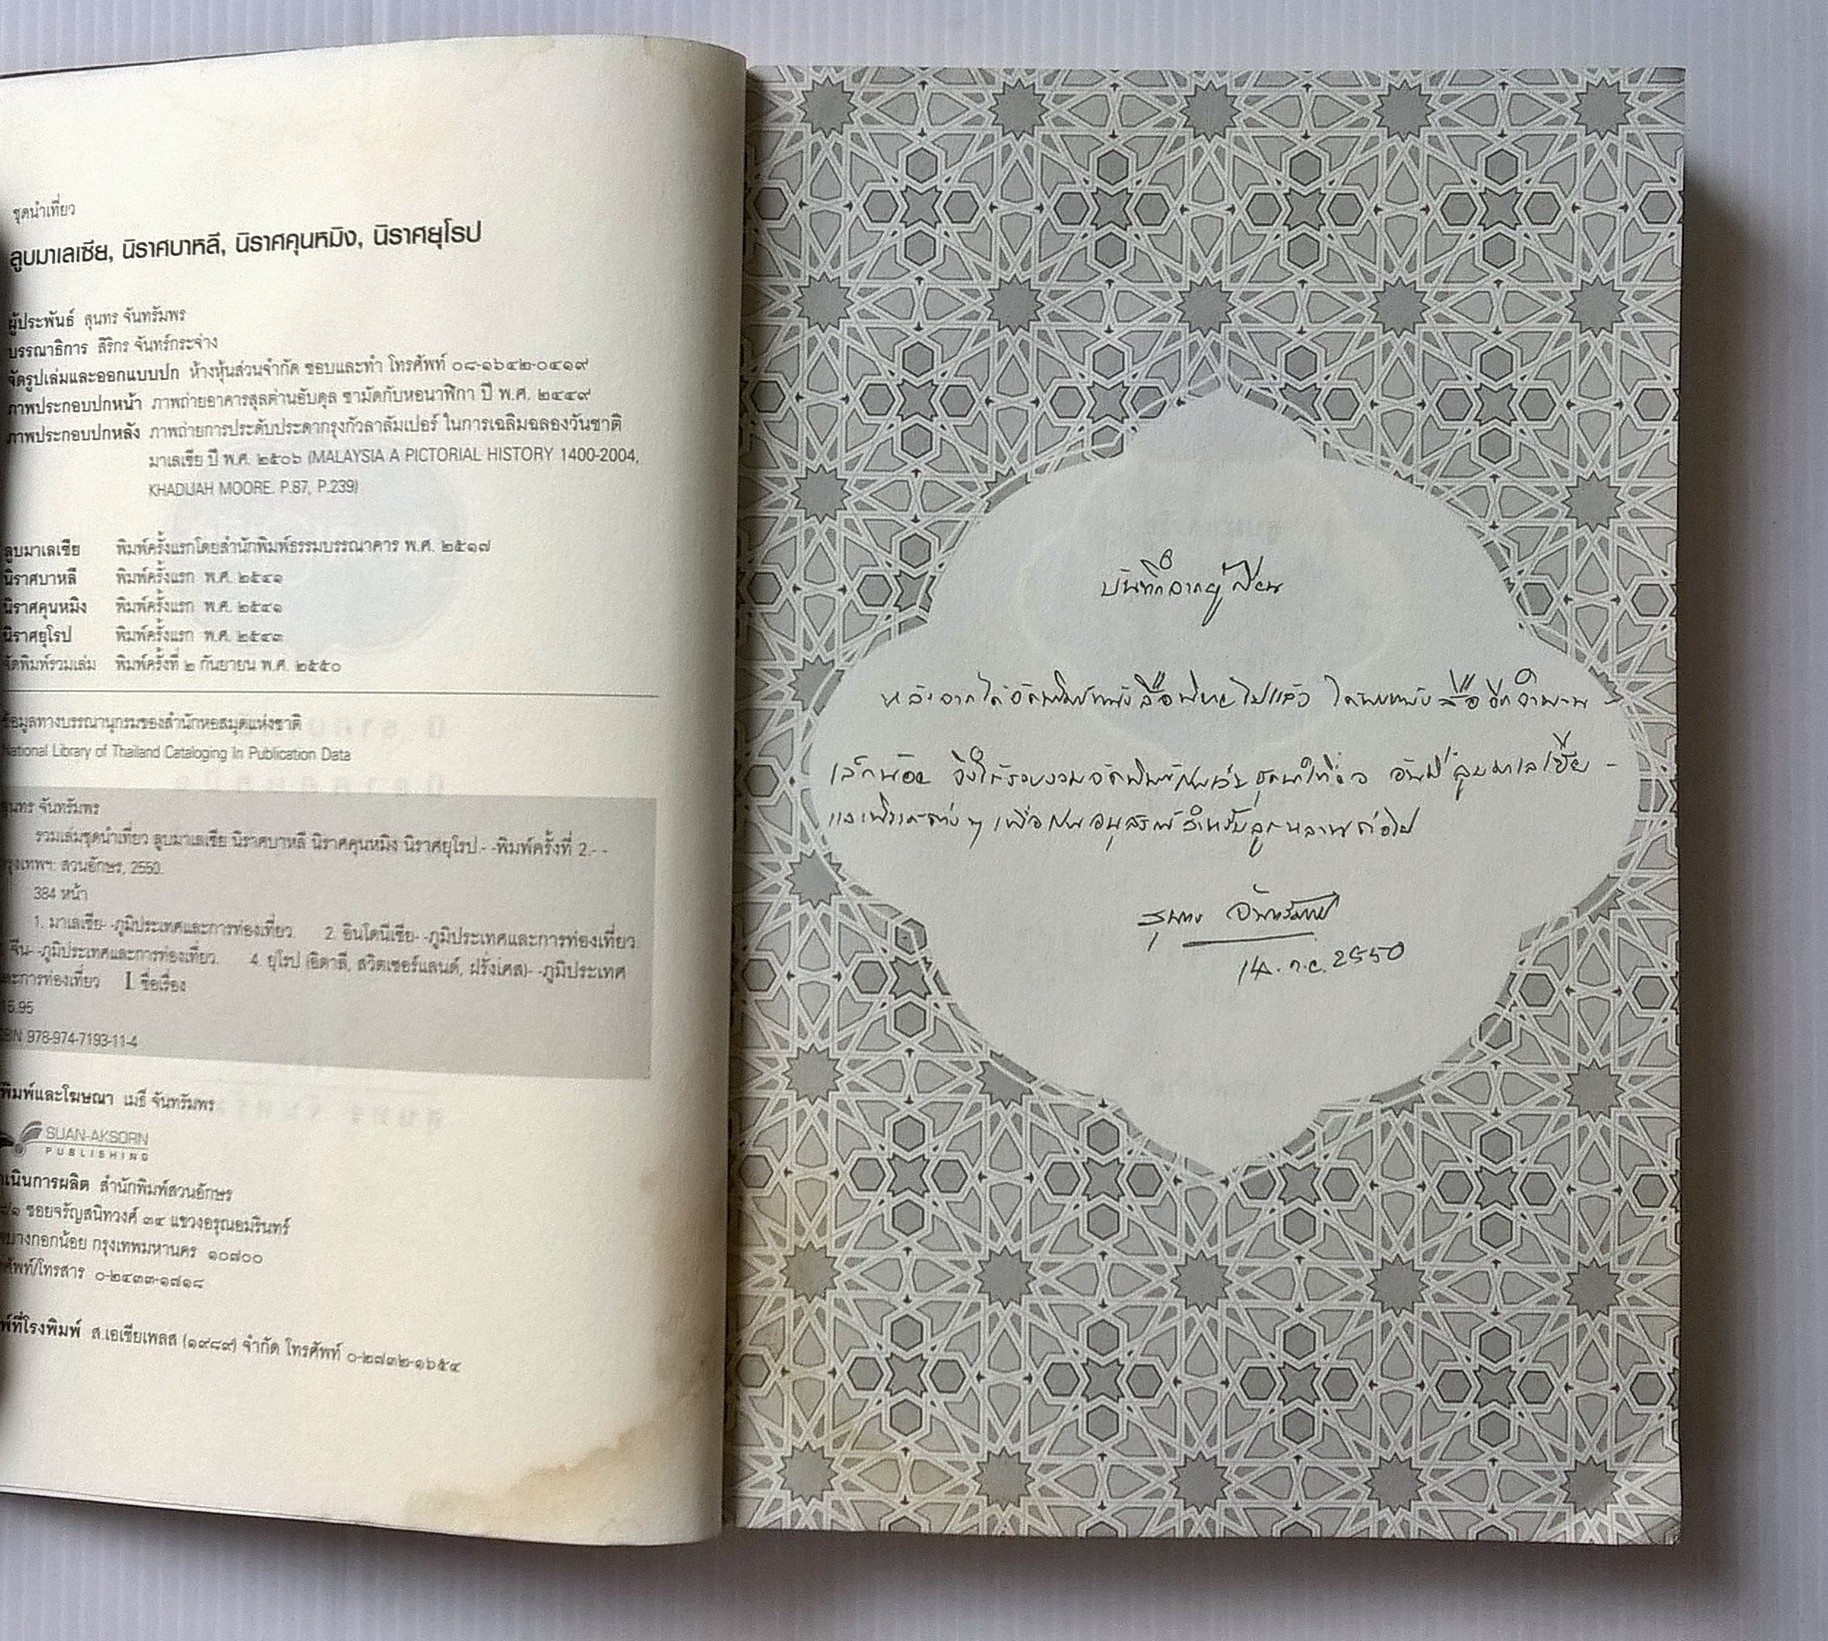 ชุดนำเที่ยว
ลูบมาเลเซีย, นิราศบาหลี, นิราศคุนหมิง, นิราศยุโรป
ผู้ประพันธ์ สุนทร จันทรัมพร
บรรณาธิการ สิริกร จันทร์กระจ่าง
จัดรูปเล่มและออกแบบปก ห้างหุ้นส่วนจำกัด ชอบและทำ โทรศัพท์ ๐๘-๑๖๔๒-๐๔๑๙
ภาพประกอบปกหน้า ภาพถ่ายอาคารสุลต่านอับดุล ซามัดกับหอนาฬิกา ปี พ.ศ. ๒๔๔๙
ภาพประกอบปกหลัง ภาพถ่ายการประดับประดากรุงกัวลาลัมเปอร์ ในการเฉลิมฉลองวันชาติ
มาเลเซีย ปี พ.ศ. ๒๕๐๖ (MALAYSIA A PICTORIAL HISTORY 1400-2004,
KHADIJAH MOORE. P.87, P.239)
ลูบมาเลเซีย พิมพ์ครั้งแรกโดยสำนักพิมพ์ธรรมบรรณาคาร พ.ศ. ๒๕๑๗
นิราศบาหลี พิมพ์ครั้งแรก พ.ศ. ๒๕๔๑
นิราศคุนหมิง พิมพ์ครั้งแรก พ.ศ. ๒๕๔๑
นิราศยุโรป พิมพ์ครั้งแรก พ.ศ. ๒๕๔๓
จัดพิมพ์รวมเล่ม พิมพ์ครั้งที่ ๒ กันยายน พ.ศ. ๒๕๕๐
ข้อมูลทางบรรณานุกรมของสำนักหอสมุดแห่งชาติ
National Library of Thailand Cataloging In Publication Data
สุนทร จันทรัมพร
รวมเล่มชุดนำเที่ยว ลูบมาเลเซีย นิราศบาหลี นิราศคุนหมิง นิราศยุโรป.- -พิมพ์ครั้งที่ 2.- -
กรุงเทพฯ: สวนอักษร, 2550.
384 หน้า
1. มาเลเซีย- -ภูมิประเทศและการท่องเที่ยว. 2. อินโดนีเซีย- -ภูมิประเทศและการท่องเที่ยว.
จีน- -ภูมิประเทศและการท่องเที่ยว. 4. ยุโรป (อิตาลี, สวิตเซอร์แลนด์, ฝรั่งเศส)- -ภูมิประเทศ
และการท่องเที่ยว I. ชื่อเรื่อง
15.95
ISBN 978-974-7193-11-4
พิมพ์และโฆษณา เมธี จันทรัมพร
SUAN-AKSORN
PUBLISHING
เนินการผลิต สำนักพิมพ์สวนอักษร
/๑ ซอยจรัญสนิทวงศ์ ๓๔ แขวงอรุณอมรินทร์
บางกอกน้อย กรุงเทพมหานคร ๑๐๗๐๐
ศัพท์/โทรสาร ๐-๒๔๓๓-๑๗๑๘
พ์ที่โรงพิมพ์ ส.เอเซียเพลส (๑๙๘๙) จำกัด โทรศัพท์ ๐-๒๗๓๒-๑๖๕๔
บันทึกจากผู้เขียน
หลังจากได้จัดพิมพ์หนังสือ ไปแล้ว ได้พบหนังสืออีกจำนวน
เล็กน้อย จึงได้รวบรวมจัดพิมพ์เป็นเล่ม ชุดนำเที่ยว อันมี ลูบมาเลเซีย
และ ต่าง ๆ เพื่อเป็นอนุสรณ์สำหรับลูกหลานต่อไป
สุนทร จันทรัมพร
14 ก.ย. 2550